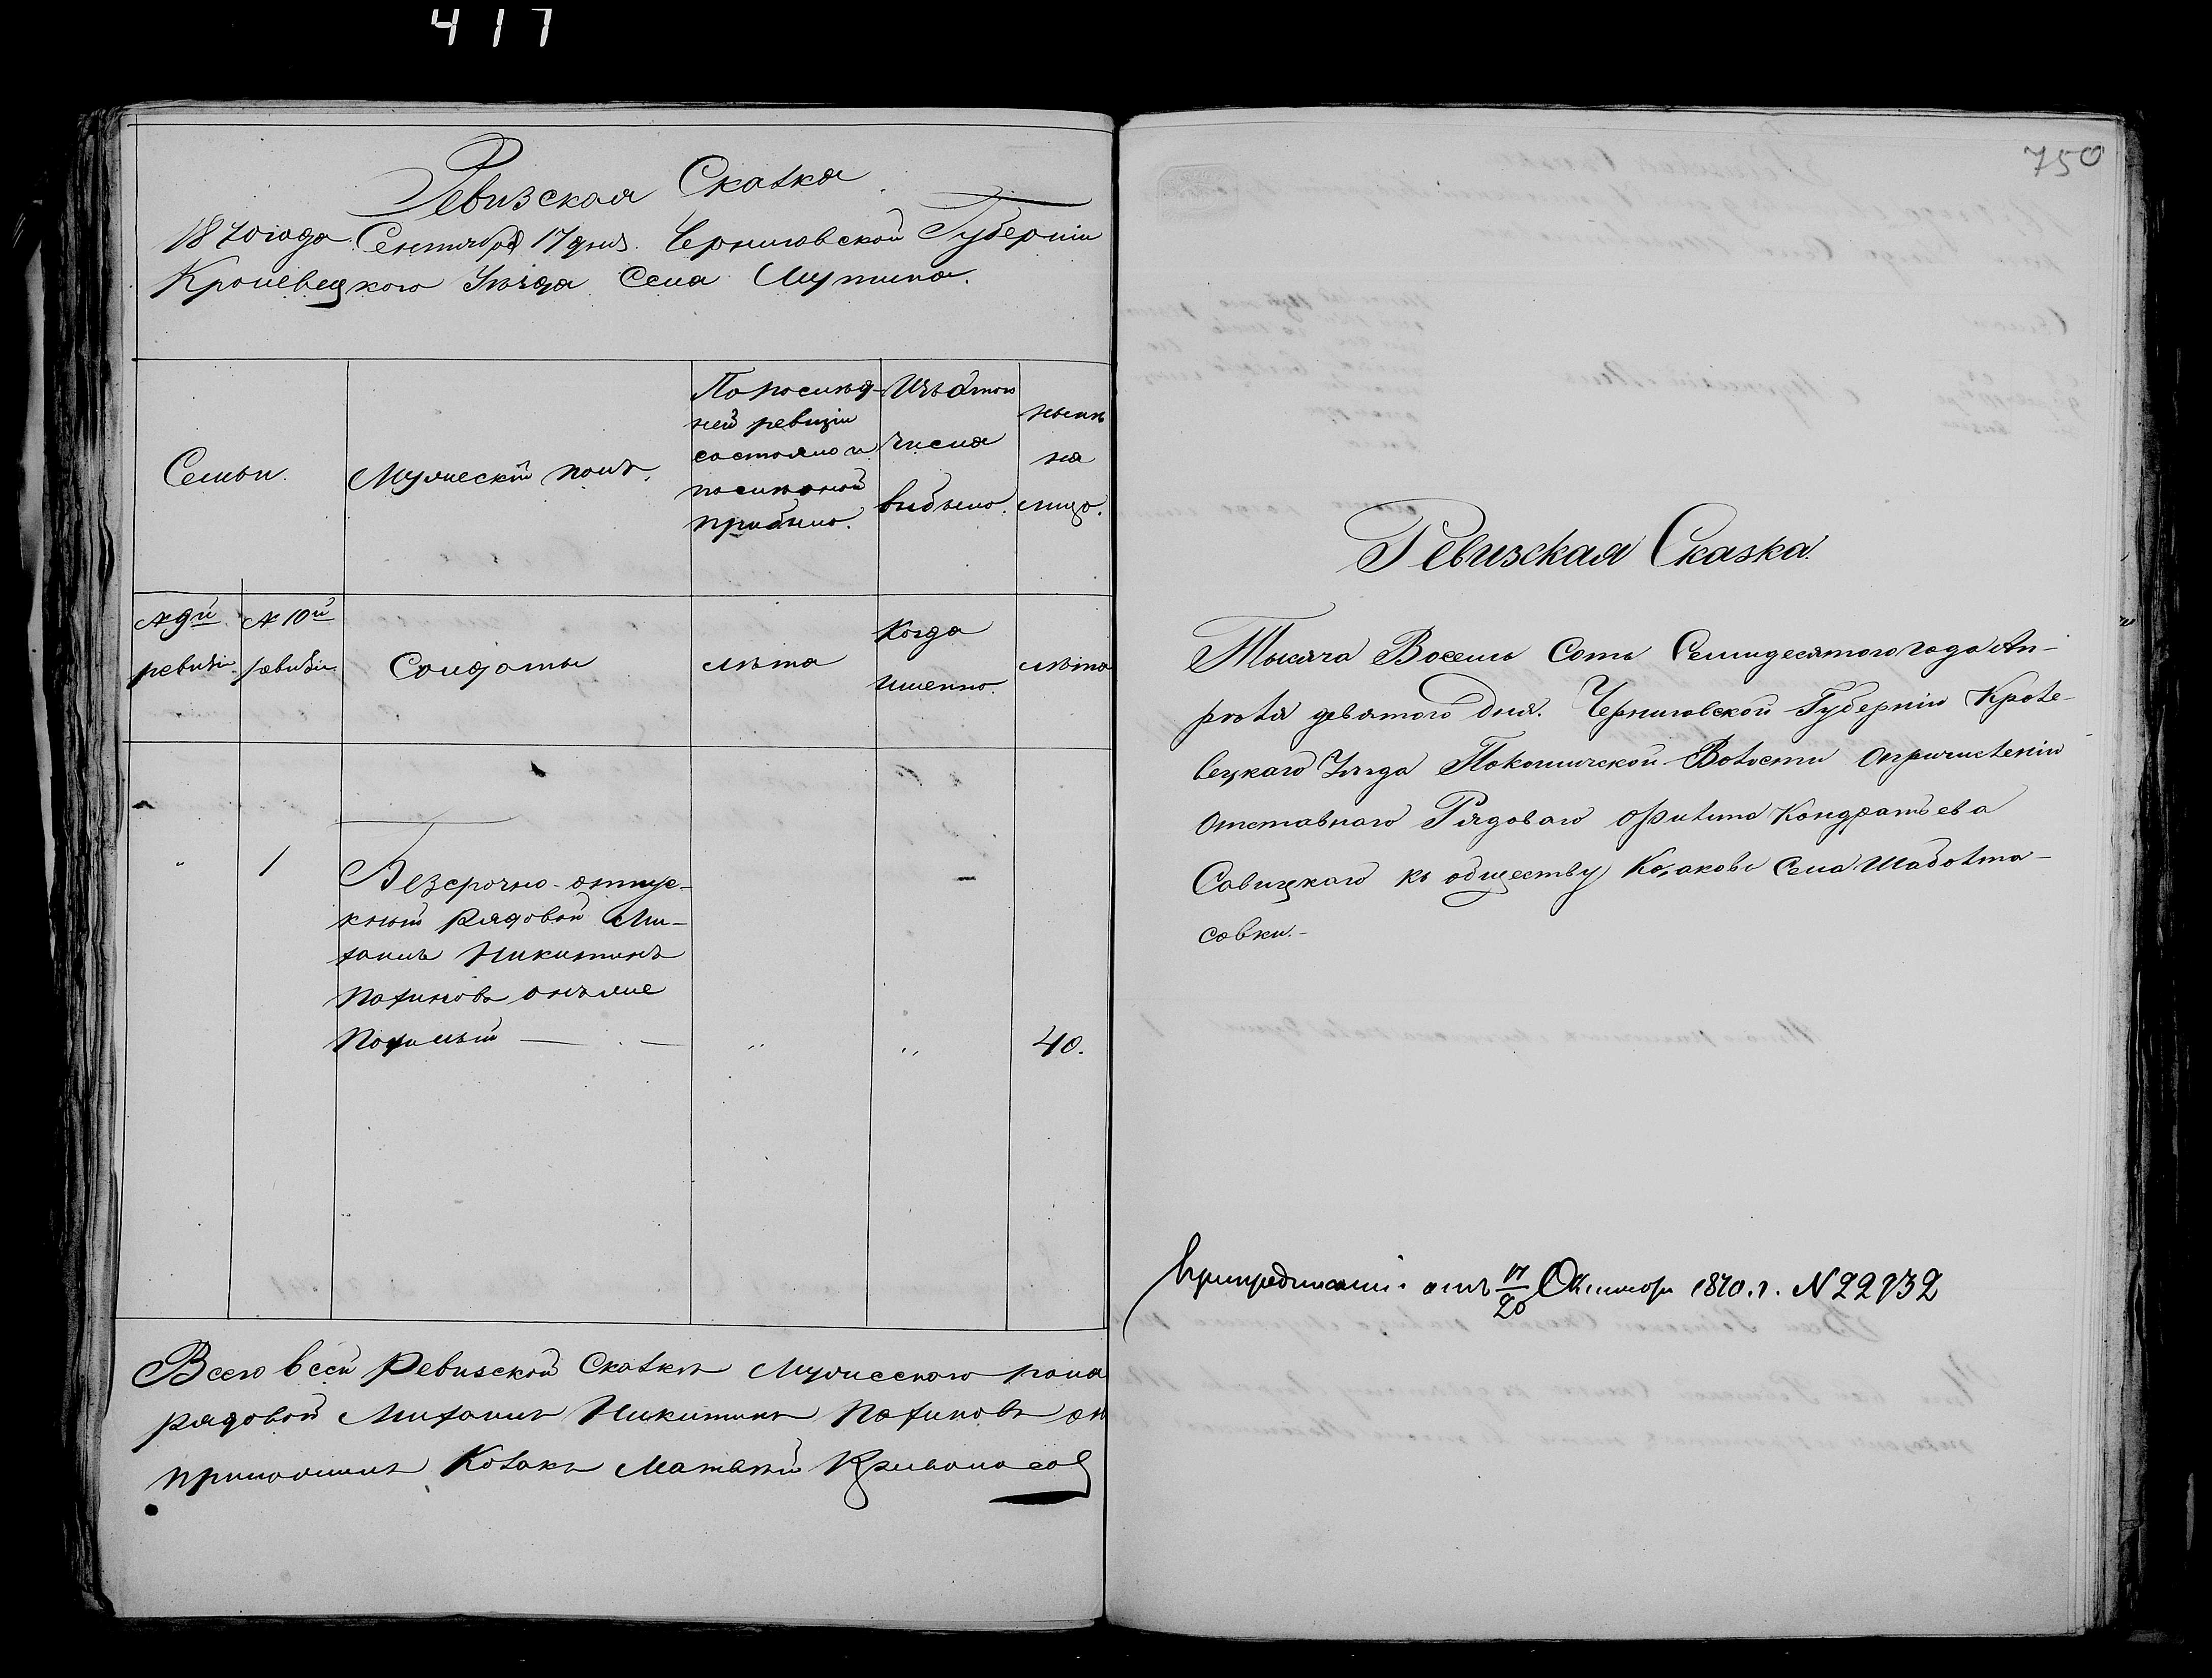 417
750
Ревизская Сказка
1870 года Сентября 17 дня. Черниговской Губерніи
Кролевецкого Уѣзда Села Мутина.
Семьи.
Мужескій полъ.
По послѣд-
ней ревизіи
состояло и
послѣ оной
прибыло.
Изъ того
числа
выбыло.
нынѣ
на
лицо.
№ 9й
ревизіи
№ 10й
ревизіи
Солдаты
лѣта
Когда
именно.
лѣта
"
1
Безсрочно-отпус-
кной рядовой Ми-
хаилъ Никитинъ
онъ же
" " 40.
Всего в сей Ревизской Сказкѣ Мужеского пола
рядовой Михаилъ Никитинъ
Козакъ Матвѣй
Ревизская Сказка.
Тысяча Восемь Сотъ Семидесятого года Ап-
рѣля девятого дня. Черниговской Губерніи Кроле-
вецкаго Уѣзда Покошичской Волости О причисленіи
Отставнаго Рядоваго Филипа Кондратьева
Савицкаго къ обществу Козаковъ Села Шабалта-
совки.-
При предписаніи отъ 17/20 Октября 1870.г. N 22732